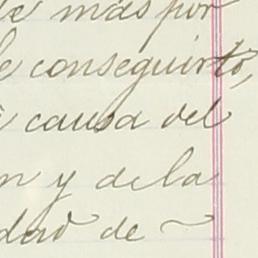 de más por
conseguirlo,
causa del
y de la
dad de